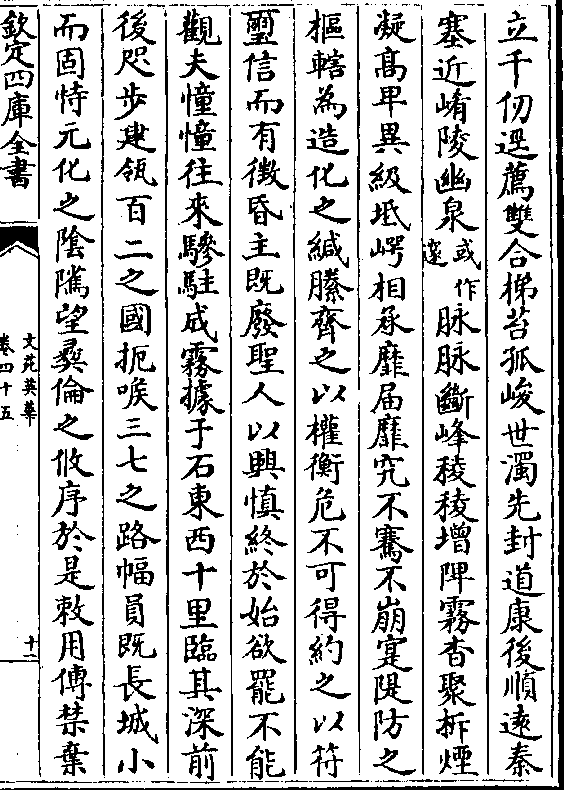 立千仞迤薦雙合梯苔孤峻世濁先封道康後順遠秦
塞近崤陵幽泉或作邃脉脉斷峰稜稜增陴霧杳聚柝煙
凝高卑異級坻崿相承靡届靡究不騫不崩寔隄防之
樞轄為造化之緘縢齊之以權衡危不可得約之以符
璽信而有徴昏主既廢聖人以興慎終於始欲罷不能
觀夫憧憧往來驂駐成霧據于石東西十里臨其深前
後咫步建瓴百二之國扼喉三七之路幅員既長城小
而固恃元化之陰隲望彝倫之攸序於是敕用傅禁棄
欽定四庫全書
文苑英華
卷四十五
十二